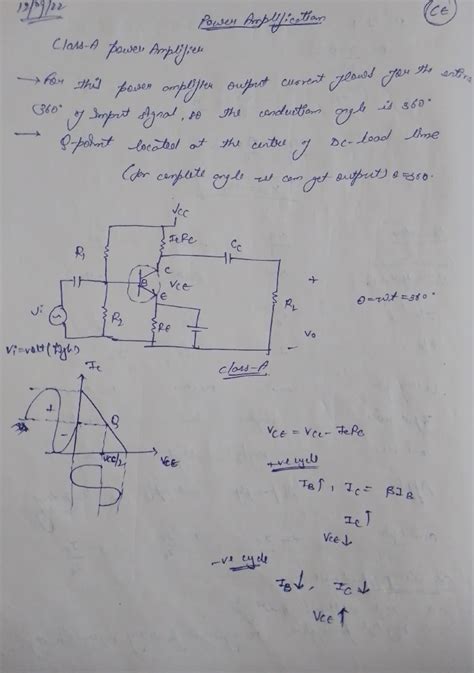 19/09/22
Power Amplification
CE
Class-A power Amplifier
→ For this power amplifier output current flows for the entire
360° of Input signal, so the conduction angle is 360°
→ Q-point located at the centre of DC-Load line
(for complete angle we can get output) θ=360°
VCC
ICRC
R1
CC
C
B
VCE
E
Vi
R2
RE
RL
+
V0
-
θ=wt=360°
class-A
IC
+
-
Q
VCC/2
VCE
VCE = VCC - ICRC
+ve cycle
IB↑, IC = βIB
IC↑
VCE↓
-ve cycle
IB↓, IC↓
VCE↑